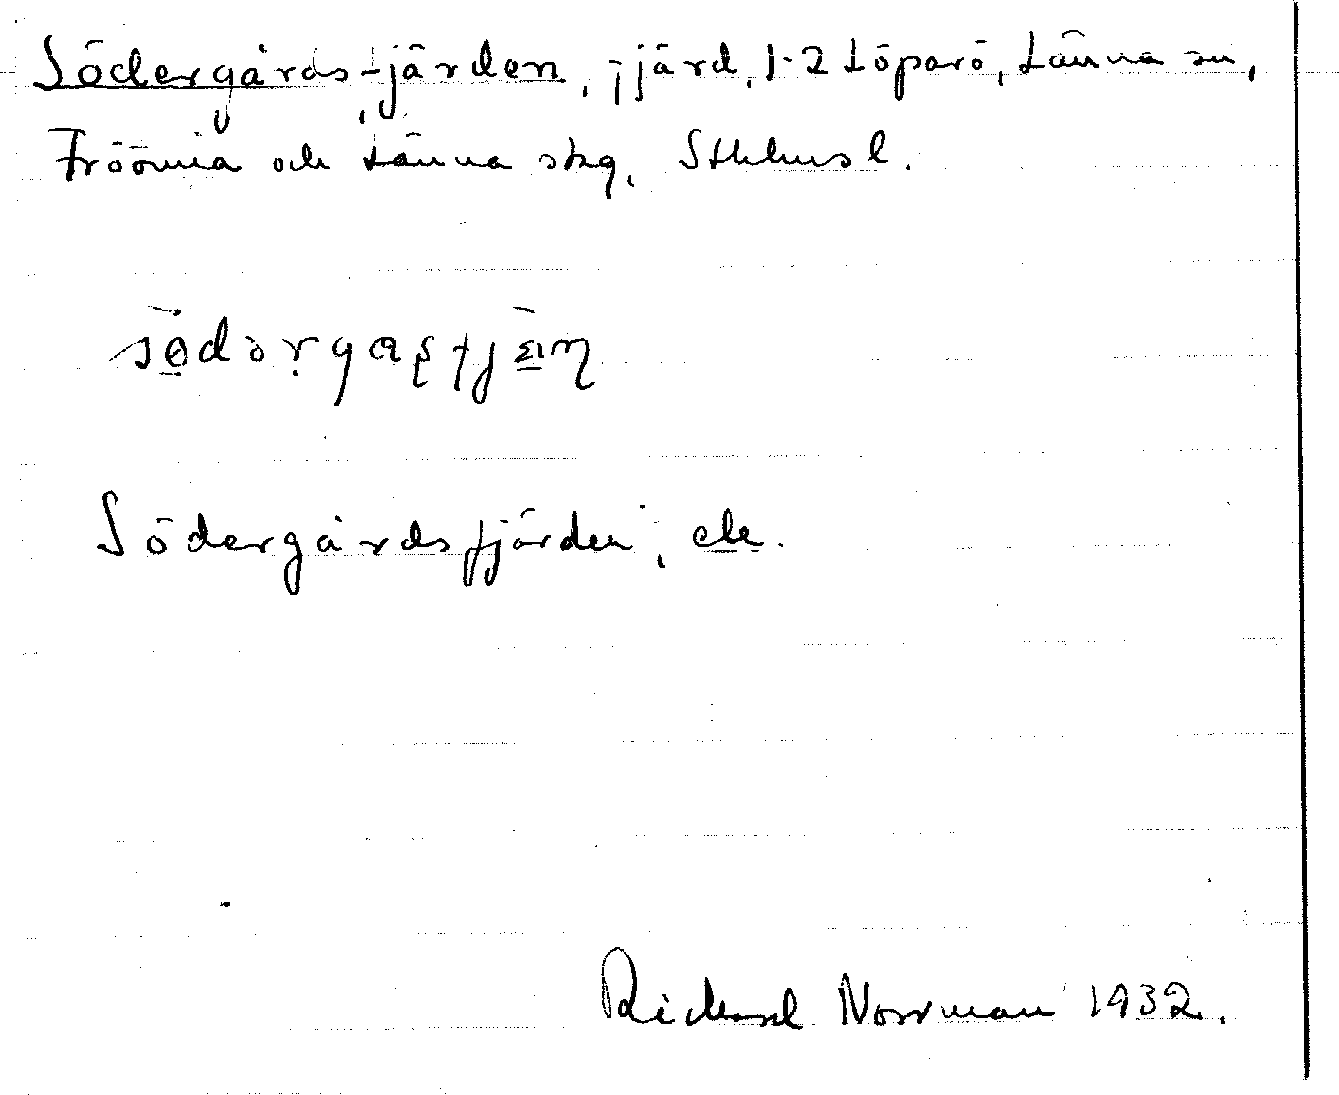 Södergårdsfjärden, fjärd, 1-2 Löparö, Länna sn,
Fröömia och Länna skg, Sthlms l.
Södergårdsfjärden, ek.
Rickard Norrman 1932.